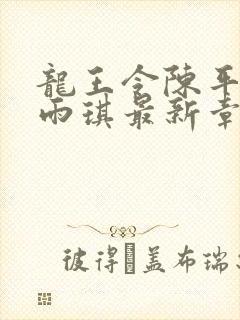 龍王令陳平
雨琪最新章
彼得 蓋布瑞